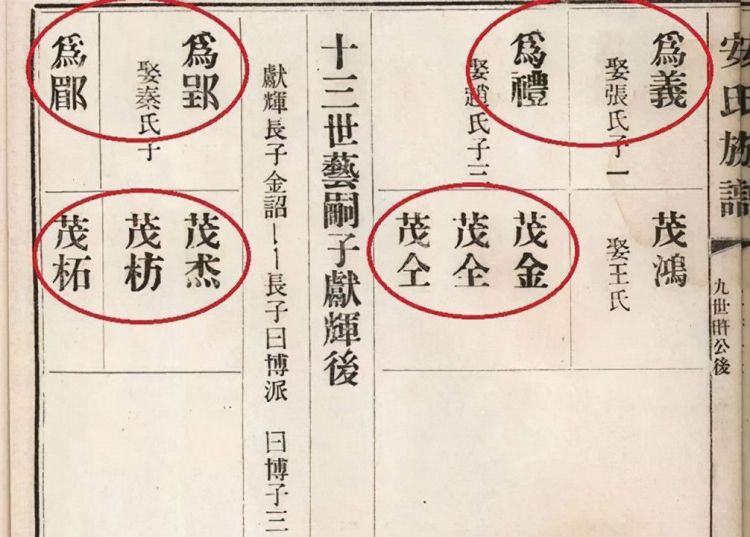 安氏族譜
九世
公後
為義
娶張氏子一
茂鴻
娶王氏
為禮
娶趙氏子三
茂金
茂仝
茂仝
十三世藝嗣子獻輝後
獻輝長子金詔
長子曰博派
曰博子三
為郢
娶秦氏子
茂杰
茂枋
為鄘
茂柘